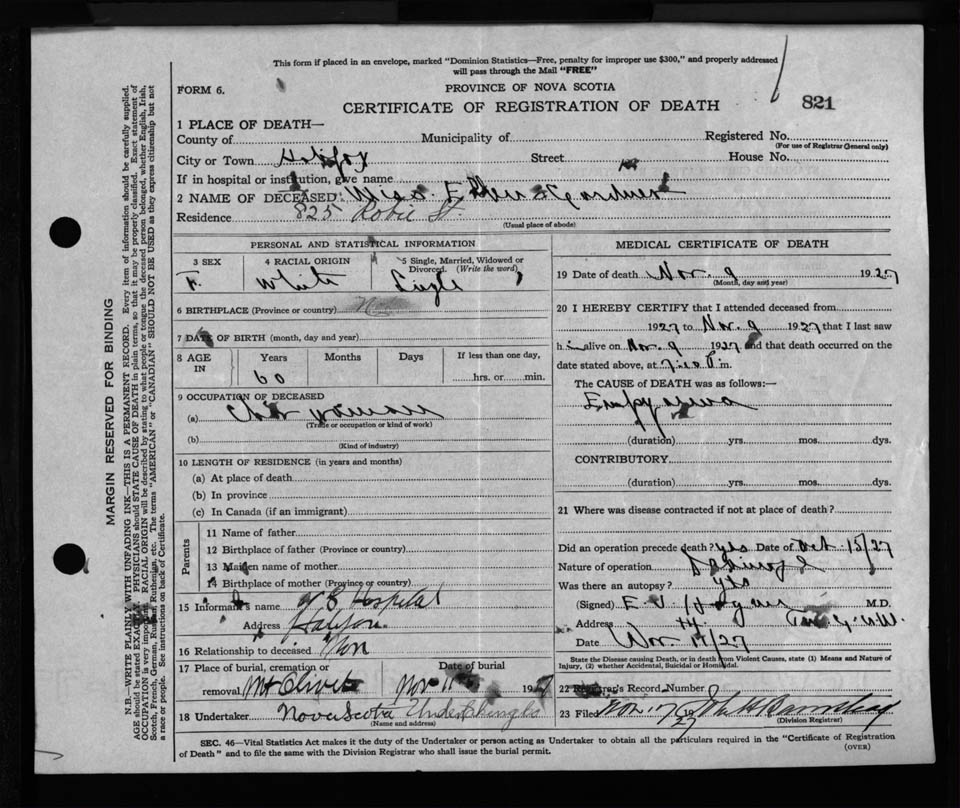 This form if placed in an envelope, marked "Dominion Statistics—Free, penalty for improper use $300," and properly addressed
will pass through the Mail "FREE"
FORM 6.
PROVINCE OF NOVA SCOTIA
CERTIFICATE OF REGISTRATION OF DEATH
821
1 PLACE OF DEATH—
County of Municipality of Registered No.
(For use of Registrar General only)
City or Town Halifax Street House No.
If in hospital or institution, give name
2 NAME OF DECEASED Miss Gardner
Residence 825 Robie St.
(Usual place of abode)
PERSONAL AND STATISTICAL INFORMATION
3 SEX 4 RACIAL ORIGIN 5 Single, Married, Widowed or Divorced. (Write the word)
F. White Single
6 BIRTHPLACE (Province or country)
7 DATE OF BIRTH (month, day and year)
8 AGE IN Years Months Days If less than one day,
60 hrs. or min.
9 OCCUPATION OF DECEASED
(a) Char woman
(Trade or occupation or kind of work)
(b)
(Kind of industry)
10 LENGTH OF RESIDENCE (in years and months)
(a) At place of death
(b) In province
(c) In Canada (if an immigrant)
Parents
11 Name of father
12 Birthplace of father (Province or country)
13 Maiden name of mother
14 Birthplace of mother (Province or country)
15 Informant's name Hospital
Address Halifax
16 Relationship to deceased Non
17 Place of burial, cremation or Date of burial
removal Mt Olivet Nov 11 1927
18 Undertaker Nova Scotia
(Name and address)
MEDICAL CERTIFICATE OF DEATH
19 Date of death Nov. 9 1927
(Month, day and year)
20 I HEREBY CERTIFY that I attended deceased from
1927 to Nov 9 1927 that I last saw
h alive on Nov 9 1927 and that death occurred on the
date stated above, at m.
The CAUSE of DEATH was as follows:—
Empyema
(duration) yrs. mos. dys.
CONTRIBUTORY
(duration) yrs. mos. dys.
21 Where was disease contracted if not at place of death?
Did an operation precede death? yes Date of Oct 15/27
Nature of operation Drainage
Was there an autopsy? yes
(Signed) E. V. Hogan M.D.
Address
Date Nov /27
State the Disease causing Death, or in death from Violent Causes, state (1) Means and Nature of
Injury, (2) whether Accidental, Suicidal or Homicidal.
22 Registrar's Record Number
23 Filed Nov. 17 1927 John
(Division Registrar)
SEC. 46—Vital Statistics Act makes it the duty of the Undertaker or person acting as Undertaker to obtain all the particulars required in the "Certificate of Registration
of Death" and to file the same with the Division Registrar who shall issue the burial permit. (OVER)
MARGIN RESERVED FOR BINDING
N.B.—WRITE PLAINLY WITH UNFADING INK—THIS IS A PERMANENT RECORD. Every item of information should be carefully supplied.
AGE should be stated EXACTLY. PHYSICIANS should STATE CAUSE OF DEATH in plain terms, so that it may be properly classified. Exact statement of
OCCUPATION is very important. RACIAL ORIGIN will be described by stating to what people or tongue the deceased person belonged, whether English, Irish,
Scotch, French, German, Russian, Ruthenian, etc. The terms "AMERICAN" or "CANADIAN" SHOULD NOT BE USED as they express citizenship but not
a race or people. See instructions on back of Certificate.